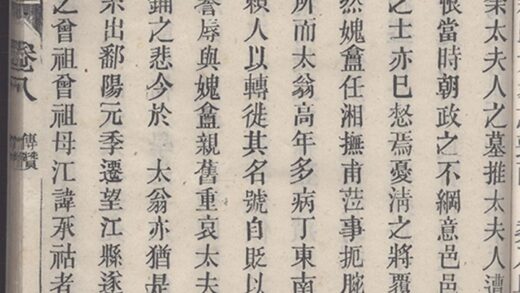 太夫人之墓推太夫人遭
恨當時朝政之不綱意邑
之士亦已焉憂淸之將覆
然媿龕任湘撫甫蒞事扼
所而太翁高年多病丁東南
賴人以轉徙其名號自貶以
辱與媿龕親舊重哀太夫
之悲今於 太翁亦猶是
系出鄱陽元季遷望江縣遂
之曾祖曾祖母江諱承祜者
卷八 傳贊